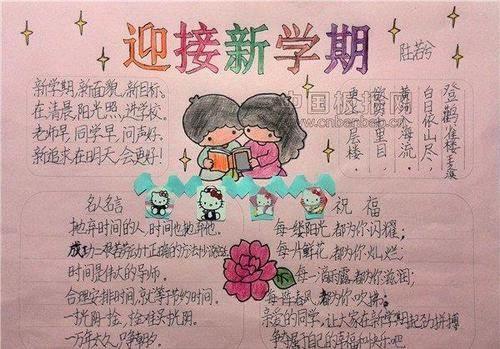 迎接新学期
陆若兮
新学期,新面貌,新目标。
在清晨,阳光照,进学校。
老师早,同学早,问声好。
新追求,在明天,会更好!
登鹳雀楼 王之涣
白日依山尽,
黄河入海流。
欲穷千里目,
更上一层楼。
中国板报网
名人名言
抛弃时间的人,时间也抛弃他。
成功=艰苦劳动+正确的方法+少说空话
时间是伟大的导师。
合理安排时间,就等于节约时间。
一万年太久,只争朝夕。
祝福
每一缕阳光,都为你闪耀;
每一片鲜花,都为你灿烂;
每一滴雨露,都为你滋润;
每一阵春风,都为你吹拂;
亲爱的同学,让大家在新学期起劲拼搏
属于自己的幸福和快乐吧